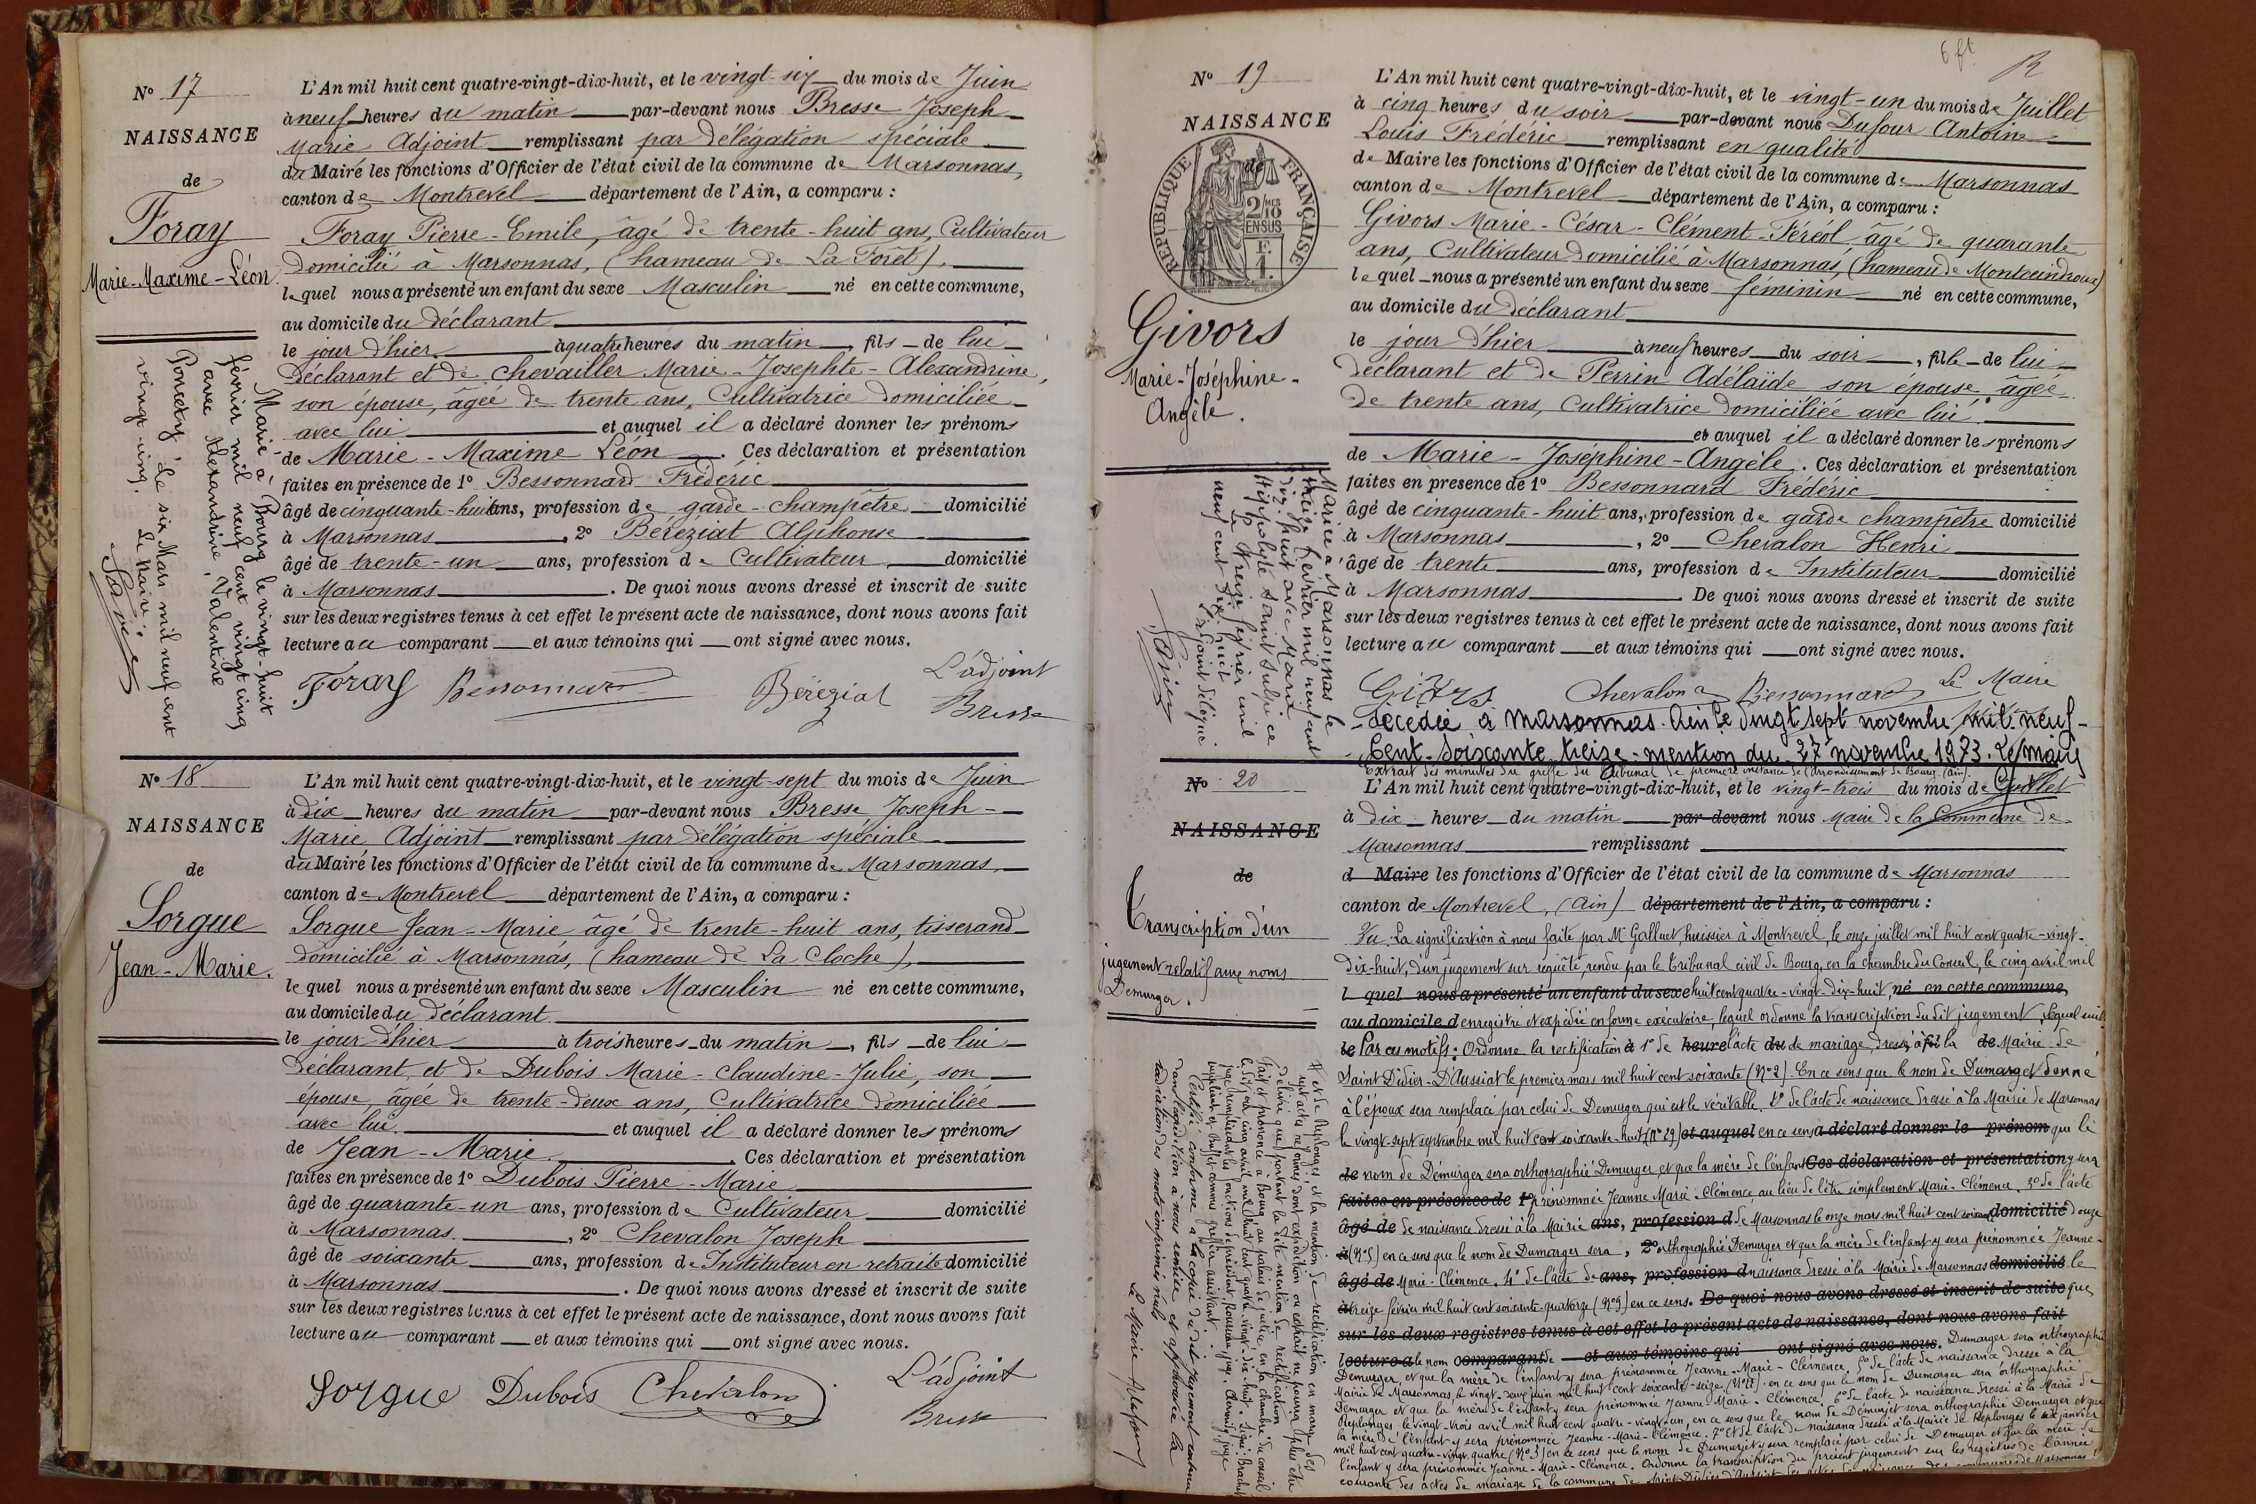 N° 17
NAISSANCE
de
Foray
Marie-Maxime-Léon
Marié à Bourg le vingt-huit
février mil neuf cent vingt cinq
avec Alexandrine, Valentine
Poncety. Le six Mars mil neuf cent
vingt-cinq. Le Maire:
L'An mil huit cent quatre-vingt-dix-huit, et le vingt-six du mois de Juin
à neuf heures du matin par-devant nous Bresse Joseph-
Marie Adjoint remplissant par délégation spéciale
du Maire les fonctions d'Officier de l'état civil de la commune de Marsonnas,
canton de Montrevel département de l'Ain, a comparu :
Foray Pierre-Emile, âgé de trente-huit ans, Cultivateur
domicilié à Marsonnas, (hameau de La Forêt),
lequel nous a présenté un enfant du sexe Masculin né en cette commune,
au domicile du déclarant
le jour d'hier à quatre heures du matin, fils de lui
déclarant et de Chevailler Marie-Josephte-Alexandrine,
son épouse, âgée de trente ans, Cultivatrice domiciliée
avec lui et auquel il a déclaré donner les prénoms
de Marie-Maxime Léon. Ces déclaration et présentation
faites en présence de 1° Bessonnard Frédéric
âgé de cinquante-huit ans, profession de garde-champêtre domicilié
à Marsonnas, 2° Béréziat Alphonse
âgé de trente-un ans, profession de Cultivateur domicilié
à Marsonnas. De quoi nous avons dressé et inscrit de suite
sur les deux registres tenus à cet effet le présent acte de naissance, dont nous avons fait
lecture au comparant et aux témoins qui ont signé avec nous.
L'adjoint
Foray Bessonnard Béréziat Bresse
N° 18
NAISSANCE
de
Sorgue
Jean-Marie.
L'An mil huit cent quatre-vingt-dix-huit, et le vingt-sept du mois de Juin
à dix heures du matin par-devant nous Bresse Joseph-
Marie Adjoint remplissant par délégation spéciale
du Maire les fonctions d'Officier de l'état civil de la commune de Marsonnas,
canton de Montrevel département de l'Ain, a comparu :
Sorgue Jean-Marie âgé de trente-huit ans, tisserand
domicilié à Marsonnas, (hameau de La Cloche),
lequel nous a présenté un enfant du sexe Masculin né en cette commune,
au domicile du déclarant
le jour d'hier à trois heures du matin, fils de lui
déclarant et de Dubois Marie-Claudine-Julie, son
épouse, âgée de trente-deux ans, Cultivatrice domiciliée
avec lui et auquel il a déclaré donner les prénoms
de Jean-Marie. Ces déclaration et présentation
faites en présence de 1° Dubois Pierre-Marie
âgé de quarante-un ans, profession de Cultivateur domicilié
à Marsonnas, 2° Chevalon Joseph
âgé de soixante ans, profession de Instituteur en retraite domicilié
à Marsonnas. De quoi nous avons dressé et inscrit de suite
sur les deux registres tenus à cet effet le présent acte de naissance, dont nous avons fait
lecture au comparant et aux témoins qui ont signé avec nous.
L'adjoint
Sorgue Dubois Chevalon Bresse
N° 19
NAISSANCE
de
REPUBLIQUE FRANÇAISE
2/10 EN SUS
Givors
Marie-Joséphine-
Angèle.
Mariée à Marsonnas le
treize février mil neuf cent
dix-huit avec Marie
Hippolyte
Le treize février mil
neuf cent dix-huit
L'adjoint délégué
L'An mil huit cent quatre-vingt-dix-huit, et le vingt-un du mois de Juillet
à cinq heures du soir par-devant nous Dufour Antoine
Louis Frédéric remplissant en qualité
de Maire les fonctions d'Officier de l'état civil de la commune de Marsonnas
canton de Montrevel département de l'Ain, a comparu :
Givors Marie-César-Clément-Féréol âgé de quarante
ans, Cultivateur domicilié à Marsonnas, (hameau de
lequel nous a présenté un enfant du sexe feminin né en cette commune,
au domicile du déclarant
le jour d'hier à neuf heures du soir, fille de lui
déclarant et de Perrin Adélaïde son épouse, âgée
de trente ans, Cultivatrice domiciliée avec lui.
et auquel il a déclaré donner les prénoms
de Marie-Joséphine-Angèle. Ces déclaration et présentation
faites en présence de 1° Bessonnard Frédéric
âgé de cinquante-huit ans, profession de garde champêtre domicilié
à Marsonnas, 2° Chevalon Henri
âgé de trente ans, profession de Instituteur domicilié
à Marsonnas. De quoi nous avons dressé et inscrit de suite
sur les deux registres tenus à cet effet le présent acte de naissance, dont nous avons fait
lecture au comparant et aux témoins qui ont signé avec nous.
Le Maire
Givors Chevalon Bessonnard
décédée à Marsonnas. Ain le vingt sept novembre mil neuf-
cent-soixante treize - mention du 27 novembre 1973. Le Maire
N° 20
NAISSANCE
de
Transcription d'un
jugement relatif aux noms
Demurger.
Extrait des minutes du greffe du Tribunal de première instance de l'arrondissement de Bourg (Ain).
L'An mil huit cent quatre-vingt-dix-huit, et le vingt-trois du mois de Juillet
à dix heures du matin par-devant nous Maire de la Commune de
Marsonnas remplissant
d Maire les fonctions d'Officier de l'état civil de la commune de Marsonnas
canton de Montrevel, (Ain) département de l'Ain, a comparu :
Vu La signification à nous faite par Me Galluet, huissier à Montrevel, le onze juillet mil huit cent quatre-vingt-
dix-huit, d'un jugement sur requête, rendu par le Tribunal civil de Bourg, en la chambre du Conseil, le cinq avril mil
l quel nous a présenté un enfant du sexe huit cent quatre-vingt-dix-huit, né en cette commune,
au domicile d enregistré et expédié en forme exécutoire, lequel ordonne la transcription du dit jugement, lequel suit:
le Par ces motifs: Ordonne la rectification à 1° de heure l'acte du de mariage, dressé à la de Mairie de
Saint Didier-D'Aussiat le premier mars mil huit cent soixante (N°2). En ce sens que le nom de Dumarget donné
à l'époux sera remplacé par celui de Demurger qui est le véritable. 2° de l'acte de naissance dressé à la Mairie de Marsonnas
le vingt-sept septembre mil huit cent soixante-huit (N°29) et auquel en ce sens a déclaré donner le prénom que le
de nom de Démurger sera orthographié Demurger et que la mère de l'enfant Ces déclaration et présentation y sera
faites en présence de 1° prénommée Jeanne Marie-Clémence au lieu de l'être simplement Marie-Clémence. 3° de l'acte
âgé de de naissance dressé à la Mairie ans, profession d de Marsonnas le onze mars mil huit cent soixante domicilié douze
à (N°5) en ce sens que le nom de Dumarger sera, 2° orthographié Demurger et que la mère de l'enfant y sera prénommée Jeanne-
âgé de Marie-Clémence. 4° de l'acte de ans, profession d naissance dressé à la Mairie de Marsonnas domicilié le
à treize février mil huit cent soixante-quatorze (N°9) en ce sens. De quoi nous avons dressé et inscrit de suite que
sur les deux registres tenus à cet effet le présent acte de naissance, dont nous avons fait
lecture a le nom comparant de et aux témoins qui ont signé avec nous. Dumarger sera orthographié
Demurger, et que la mère de l'enfant y sera prénommée Jeanne-Marie-Clémence, 5° de l'acte de naissance dressé à la
Mairie de Marsonnas, le vingt-deux juin mil huit cent soixante-seize, en ce sens que le nom de Dumarger sera orthographié
Demurger et que la mère de l'enfant y sera prénommée Jeanne-Marie-Clémence. 6° de l'acte de naissance dressé à la Mairie de
Replonges le vingt-trois avril mil huit cent quatre-vingt-un, en ce sens que le nom de Démurjet sera orthographié Demurger et que
la mère de l'enfant y sera prénommée Jeanne-Marie-Clémence. 7° et de l'acte de naissance dressé à la Mairie de Replonges le six janvier
mil huit cent quatre-vingt-quatre (N°3) en ce sens que le nom de Dumurjet y sera remplacé par celui de Demurger et que la mère de
l'enfant y sera prénommée Jeanne-Marie-Clémence. Ordonne la transcription du présent jugement sur les registres de l'année
courante des actes de mariage de la commune de Saint Didier d'Aussiat
et de Replonges et la mention de rectification en marge des
actes réformés dont expédition ou extrait ne pourra plus être
délivré que portant la dite mention de rectification
Fait et prononcé à Bourg, au palais de justice, en la chambre du conseil
le dit jour cinq avril mil huit cent quatre-vingt-dix-huit. Signé: Brachet
Certifié conforme à la copie du dit jugement contenue
dans l'expédition à nous remise et approuvée la
radiation des mots imprimés nuls.
Le Maire